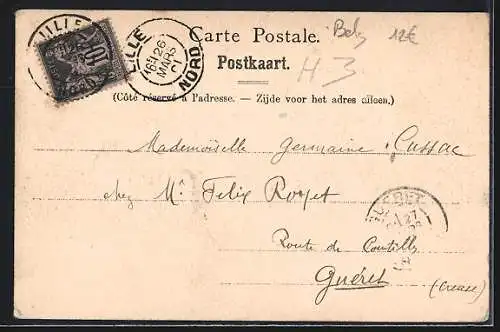 LILLE
LILLE
16 26
MARS
01
NORD
10
Carte Postale.
Belg 12€
Postkaart.
H 3
(Côté réservé à l'adresse. — Zijde voor het adres alleen.)
Mademoiselle Germaine Cussac
chez Mr Felix
GUERET
27
Route de
Guéret (Creuse)